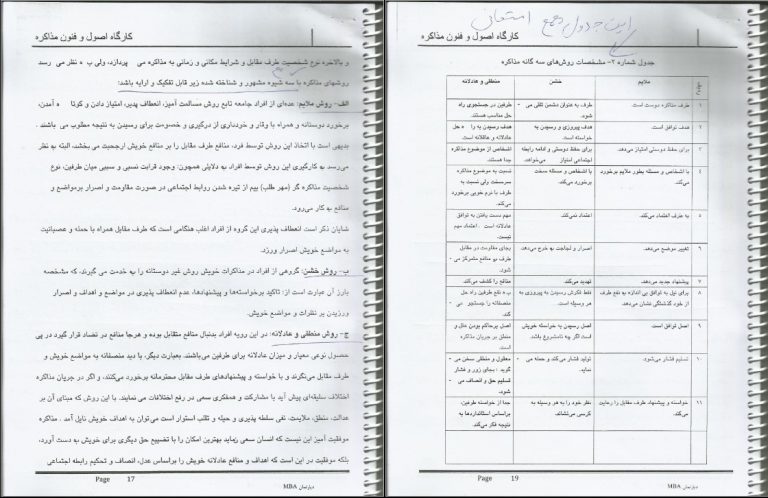 کارگاه اصول و فنون مذاکره
و بالاخره نوع شخصیت طرف مقابل و شرایط مکانی و زمانی به مذاکره می پردازد، ولی به نظر می رسد
روشهای مذاکره با سه شیوه مشهور و شناخته شده زیر قابل تفکیک و ارایه باشد:
الف- روش ملایم: عده‌ای از افراد جامعه تابع روش مسالمت آمیز، انعطاف پذیر، امتیاز دادن و کوتاه آمدن،
برخورد دوستانه و همراه با وقار و خودداری از درگیری و خصومت برای رسیدن به نتیجه مطلوب می باشند.
بدیهی است با اتخاذ این روش توسط فرد، منافع طرف مقابل را بر منافع خویش ارجحیت می بخشد، البته به نظر
می‌رسد به کارگیری این روش توسط افراد به دلایلی همچون: وجود قرابت نسبی و سببی میان طرفین، نوع
شخصیت مذاکره گر (مهر طلب) بیم از تیره شدن روابط اجتماعی در صورت مقاومت و اصرار برمواضع و
منافع به کار می‌رود.
شایان ذکر است انعطاف پذیری این گروه از افراد اغلب هنگامی است که طرف مقابل همراه با حمله و عصبانیت
به مواضع خویش اصرار ورزد.
ب- روش خشن: گروهی از افراد در مذاکرات خویش روش غیر دوستانه را به خدمت می گیرند، که مشخصه
بارز آن عبارت است از: تاکید برخواسته‌ها و پیشنهادها، عدم انعطاف پذیری در مواضع و اهداف و اصرار
ورزیدن بر نظرات و مواضع خویش.
ج- روش منطقی و عادلانه: در این رویه افراد بدنبال منافع متقابل بوده و هرجا منافع در تضاد قرار گیرد در پی
حصول نوعی معیار و میزان عادلانه برای طرفین می‌باشند. بعبارت دیگر، با دید منصفانه به مواضع خویش و
طرف مقابل می‌نگرند و با خواسته و پیشنهادهای طرف مقابل محترمانه برخورد می‌کنند، و اگر در جریان مذاکره
اختلاف سلیقه‌ای پیش آید با مشارکت و همفکری سعی در رفع اختلافات می نمایند. با این روش که مبنای آن بر
عدالت، منطق، ملایمت، نفی سلطه پذیری و حیله و تقلب استوار است می‌توان به اهداف خویش نایل آمد. مذاکره
موفقیت آمیز این نیست که انسان سعی نماید بهترین امکان را با تضییع حق دیگری برای خویش به دست آورد،
بلکه موفقیت در این است که اهداف و منافع عادلانه خویش را براساس عدل، انصاف و تحکیم رابطه اجتماعی
Page 17
دپارتمان MBA
این جدول مهم امتحانی
کارگاه اصول و فنون مذاکره
جدول شماره ۲- مشخصات روش‌های سه گانه مذاکره
ملایم خشن منطقی و عادلانه
۱ طرف مذاکره دوست است. طرف به عنوان دشمن تلقی می شود. طرفین در جستجوی راه حل مناسب هستند.
۲ هدف توافق است. هدف پیروزی و رسیدن به خواسته است. هدف رسیدن به راه حل عادلانه و عاقلانه است.
۳ برای حفظ دوستی امتیاز می‌دهد. برای حفظ دوستی و ادامه رابطه اجتماعی امتیاز می‌خواهد. اشخاص از موضوع مذاکره جدا هستند.
۴ با اشخاص و مسئله بطور ملایم برخورد می‌کند. با اشخاص و مسئله سخت برخورد می‌کند. نسبت به موضوع مذاکره سرسخت ولی نسبت به طرف با نرم خویی برخورد می‌کند.
۵ به طرف اعتماد می‌کند. اعتماد نمی‌کند. مهم دست یافتن به توافق عادلانه است، اعتماد مهم نیست.
۶ تغییر موضع می‌دهد. اصرار و لجاجت به خرج می‌دهد. بجای مقاومت در مقابل طرف بر منافع متمرکز می شود.
۷ پیشنهاد جدید می‌دهد. تهدید می‌کند. منافع را کشف می‌کند.
۸ برای نیل به توافق بی اندازه به نفع طرف از خود گذشتگی نشان می‌دهد. فقط نگرش رسیدن به پیروزی به هر وسیله است. به نفع طرفین راه حل منصفانه را جستجو می کند.
۹ اصل توافق است. اصل رسیدن به خواسته خویش است اگر چه نامشروع باشد. اصل برحاکم بودن عدل و منطق بر جریان مذاکره است.
۱۰ تسلیم فشار می‌شود. تولید فشار می‌کند و حمله می نماید. معقول و منطقی سخن می گوید، بجای زور و فشار تسلیم حق و انصاف می شود.
۱۱ خواسته و پیشنهاد طرف مقابل را رعایت می‌کند. نظر خود را به هر وسیله به کرسی می‌نشاند. جدا از خواسته طرفین، براساس استانداردها به نتیجه فکر می‌کند.
Page 19
دپارتمان MBA